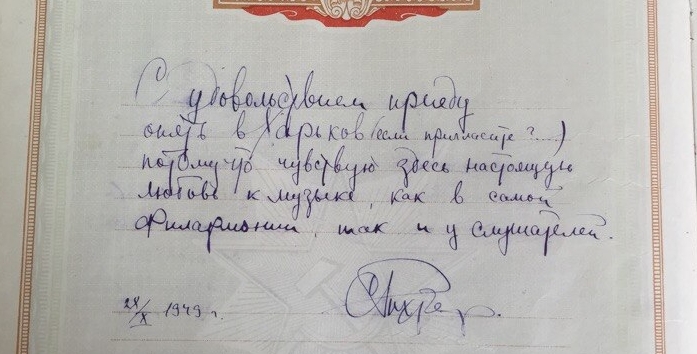 С удовольствием приеду
опять в Харьков (если пригласите?...)
потому-что чувствую здесь настоящую
любовь к музыке, как в самой
Филармонии, так и у слушателей.
С Рихтер.
/X 1949 г.